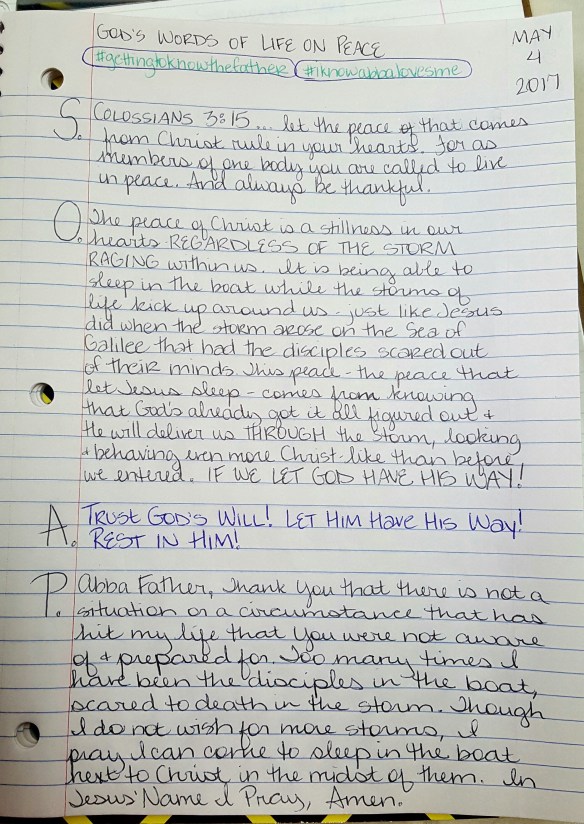 GOD'S WORDS OF LIFE ON PEACE
MAY
4
2017
#gettingtoknowthefather #iknowabbalovesme
S. COLOSSIANS 3:15 ... let the peace of that comes
from Christ rule in your hearts. For as
members of one body you are called to live
in peace. And always be thankful.
O. The peace of Christ is a stillness in our
hearts REGARDLESS OF THE STORM
RAGING within us. It is being able to
sleep in the boat while the storms of
life kick up around us - just like Jesus
did when the storm arose on the Sea of
Galilee that had the disciples scared out
of their minds. This peace - the peace that
let Jesus sleep - comes from knowing
that God's already got it all figured out +
He will deliver us THROUGH the storm, looking
+ behaving even more Christ-like than before
we entered. IF WE LET GOD HAVE HIS WAY!
A. TRUST GOD'S WILL! LET HIM Have His Way!
REST IN HIM!
P. Abba Father, Thank You that there is not a
situation or a circumstance that has
hit my life that You were not aware
of + prepared for. Too many times I
have been the disciples in the boat,
scared to death in the storm. Though
I do not wish for more storms, I
pray I can come to sleep in the boat
next to Christ in the midst of them. In
Jesus' Name I Pray, Amen.